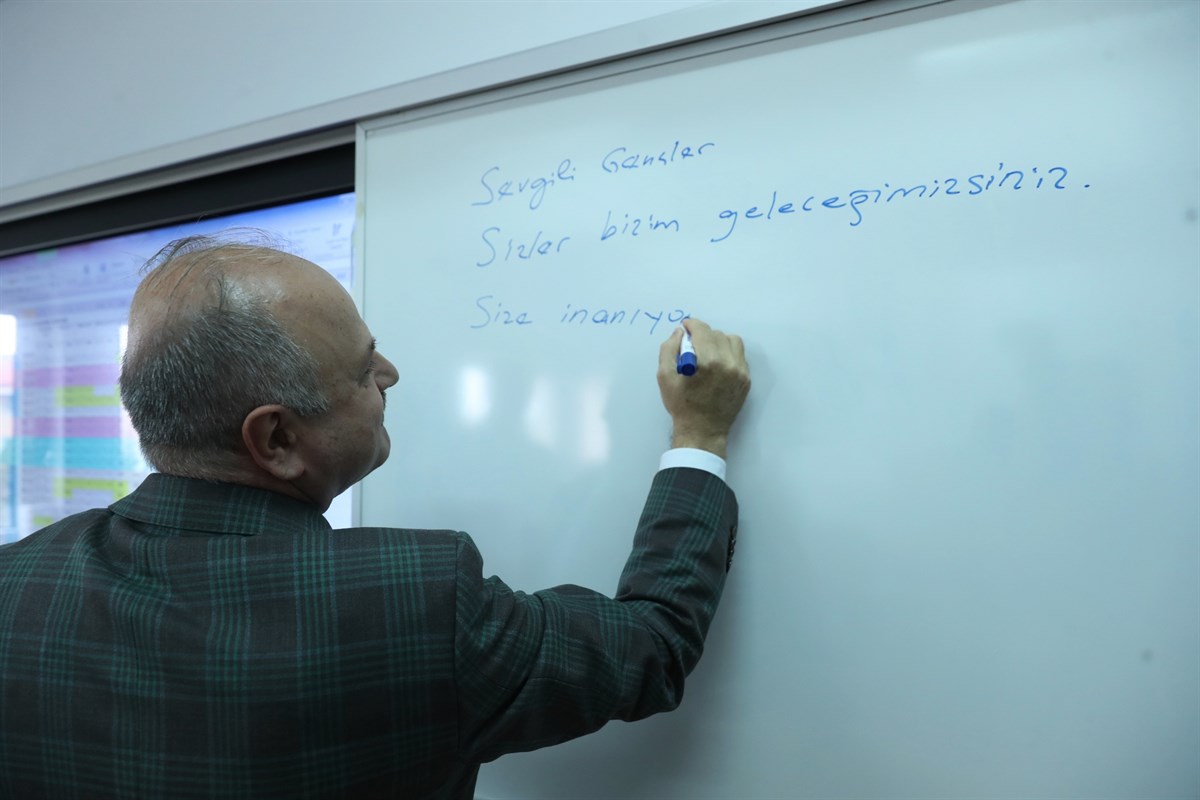 Sevgili Gençler
Sizler bizim geleceğimizsiniz.
Size inanıyo